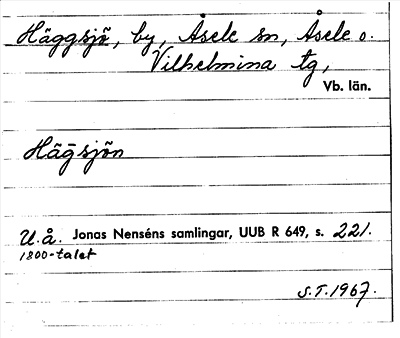 Häggsjö, by, Åsele sn, Åsele o.
Vilhelmina tg,
Vb. län.
Häg̅sjön
U.å. Jonas Nenséns samlingar, UUB R 649, s. 221.
1800-talet
S.T. 1967.